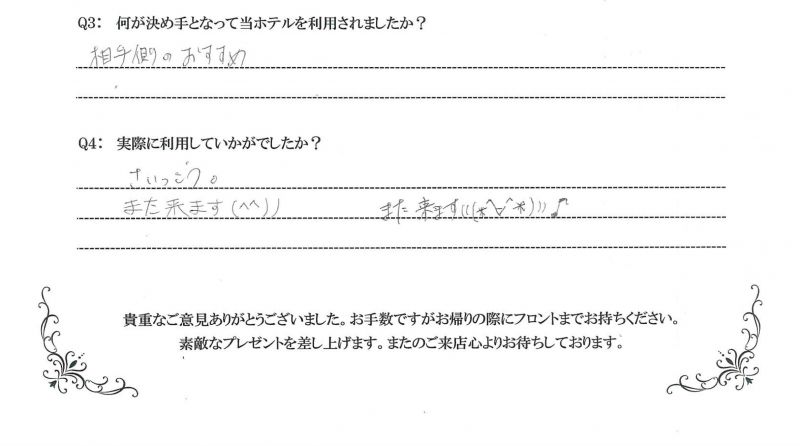 Q3: 何が決め手となって当ホテルを利用されましたか？
相手側のおすすめ
Q4: 実際に利用していかがでしたか？
さいっこう。
また来ます(^^))
また来ます((*^∨^*))♪
貴重なご意見ありがとうございました。お手数ですがお帰りの際にフロントまでお持ちください。
素敵なプレゼントを差し上げます。またのご来店心よりお待ちしております。